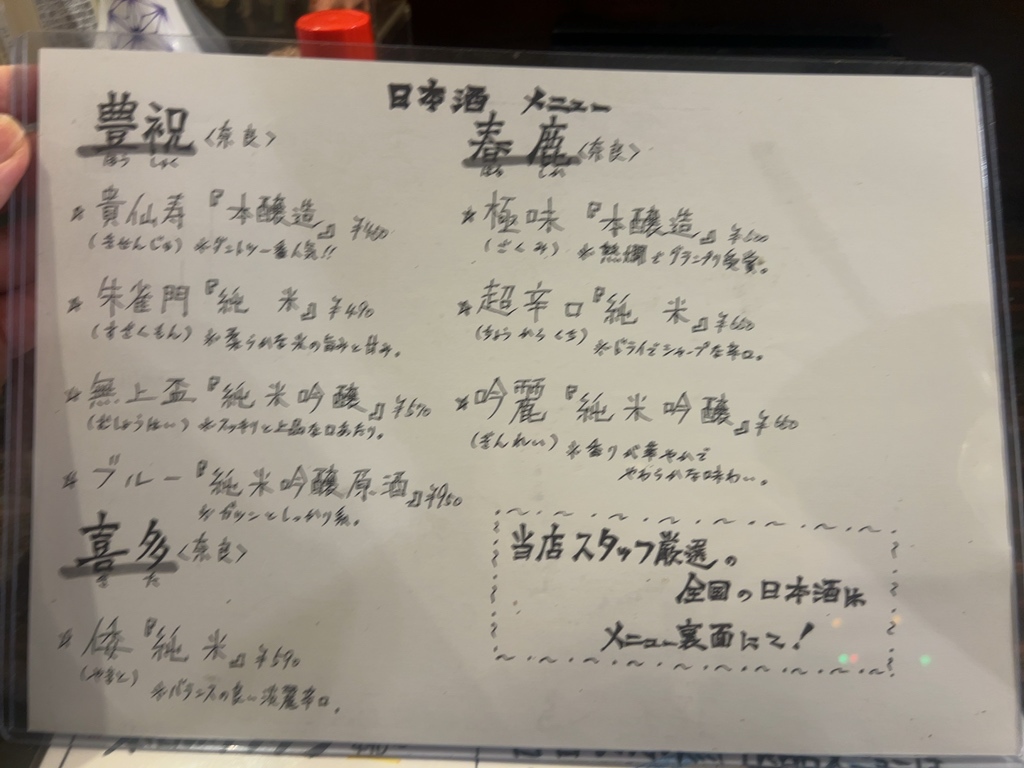 日本酒 メニュー
豊祝〈奈良〉
ほう しゅく
* 貴仙寿『本醸造』¥460
(きせんじゅ) ※ダントツ一番人気!!
* 朱雀門『純 米』¥490
(すざくもん) ※柔らかな米の旨みと甘み。
* 無上盃『純米吟醸』¥570
(むじょうはい) ※スッキリと上品な口あたり。
* ブルー『純米吟醸原酒』¥950
※ガツンとしっかり系。
喜多〈奈良〉
き た
* 倭『純 米』¥590
(やまと) ※バランスの良い淡麗辛口。
春鹿〈奈良〉
はる しか
* 極味『本醸造』¥500
(きくみ) ※熱燗でグランプリ受賞。
* 超辛口『純 米』¥660
(ちょうからくち) ※ドライでシャープな辛口。
* 吟麗『純米吟醸』¥680
(ぎんれい) ※香りが華やかで
やわらかな味わい。
当店スタッフ厳選の
全国の日本酒は
メニュー裏面にて!